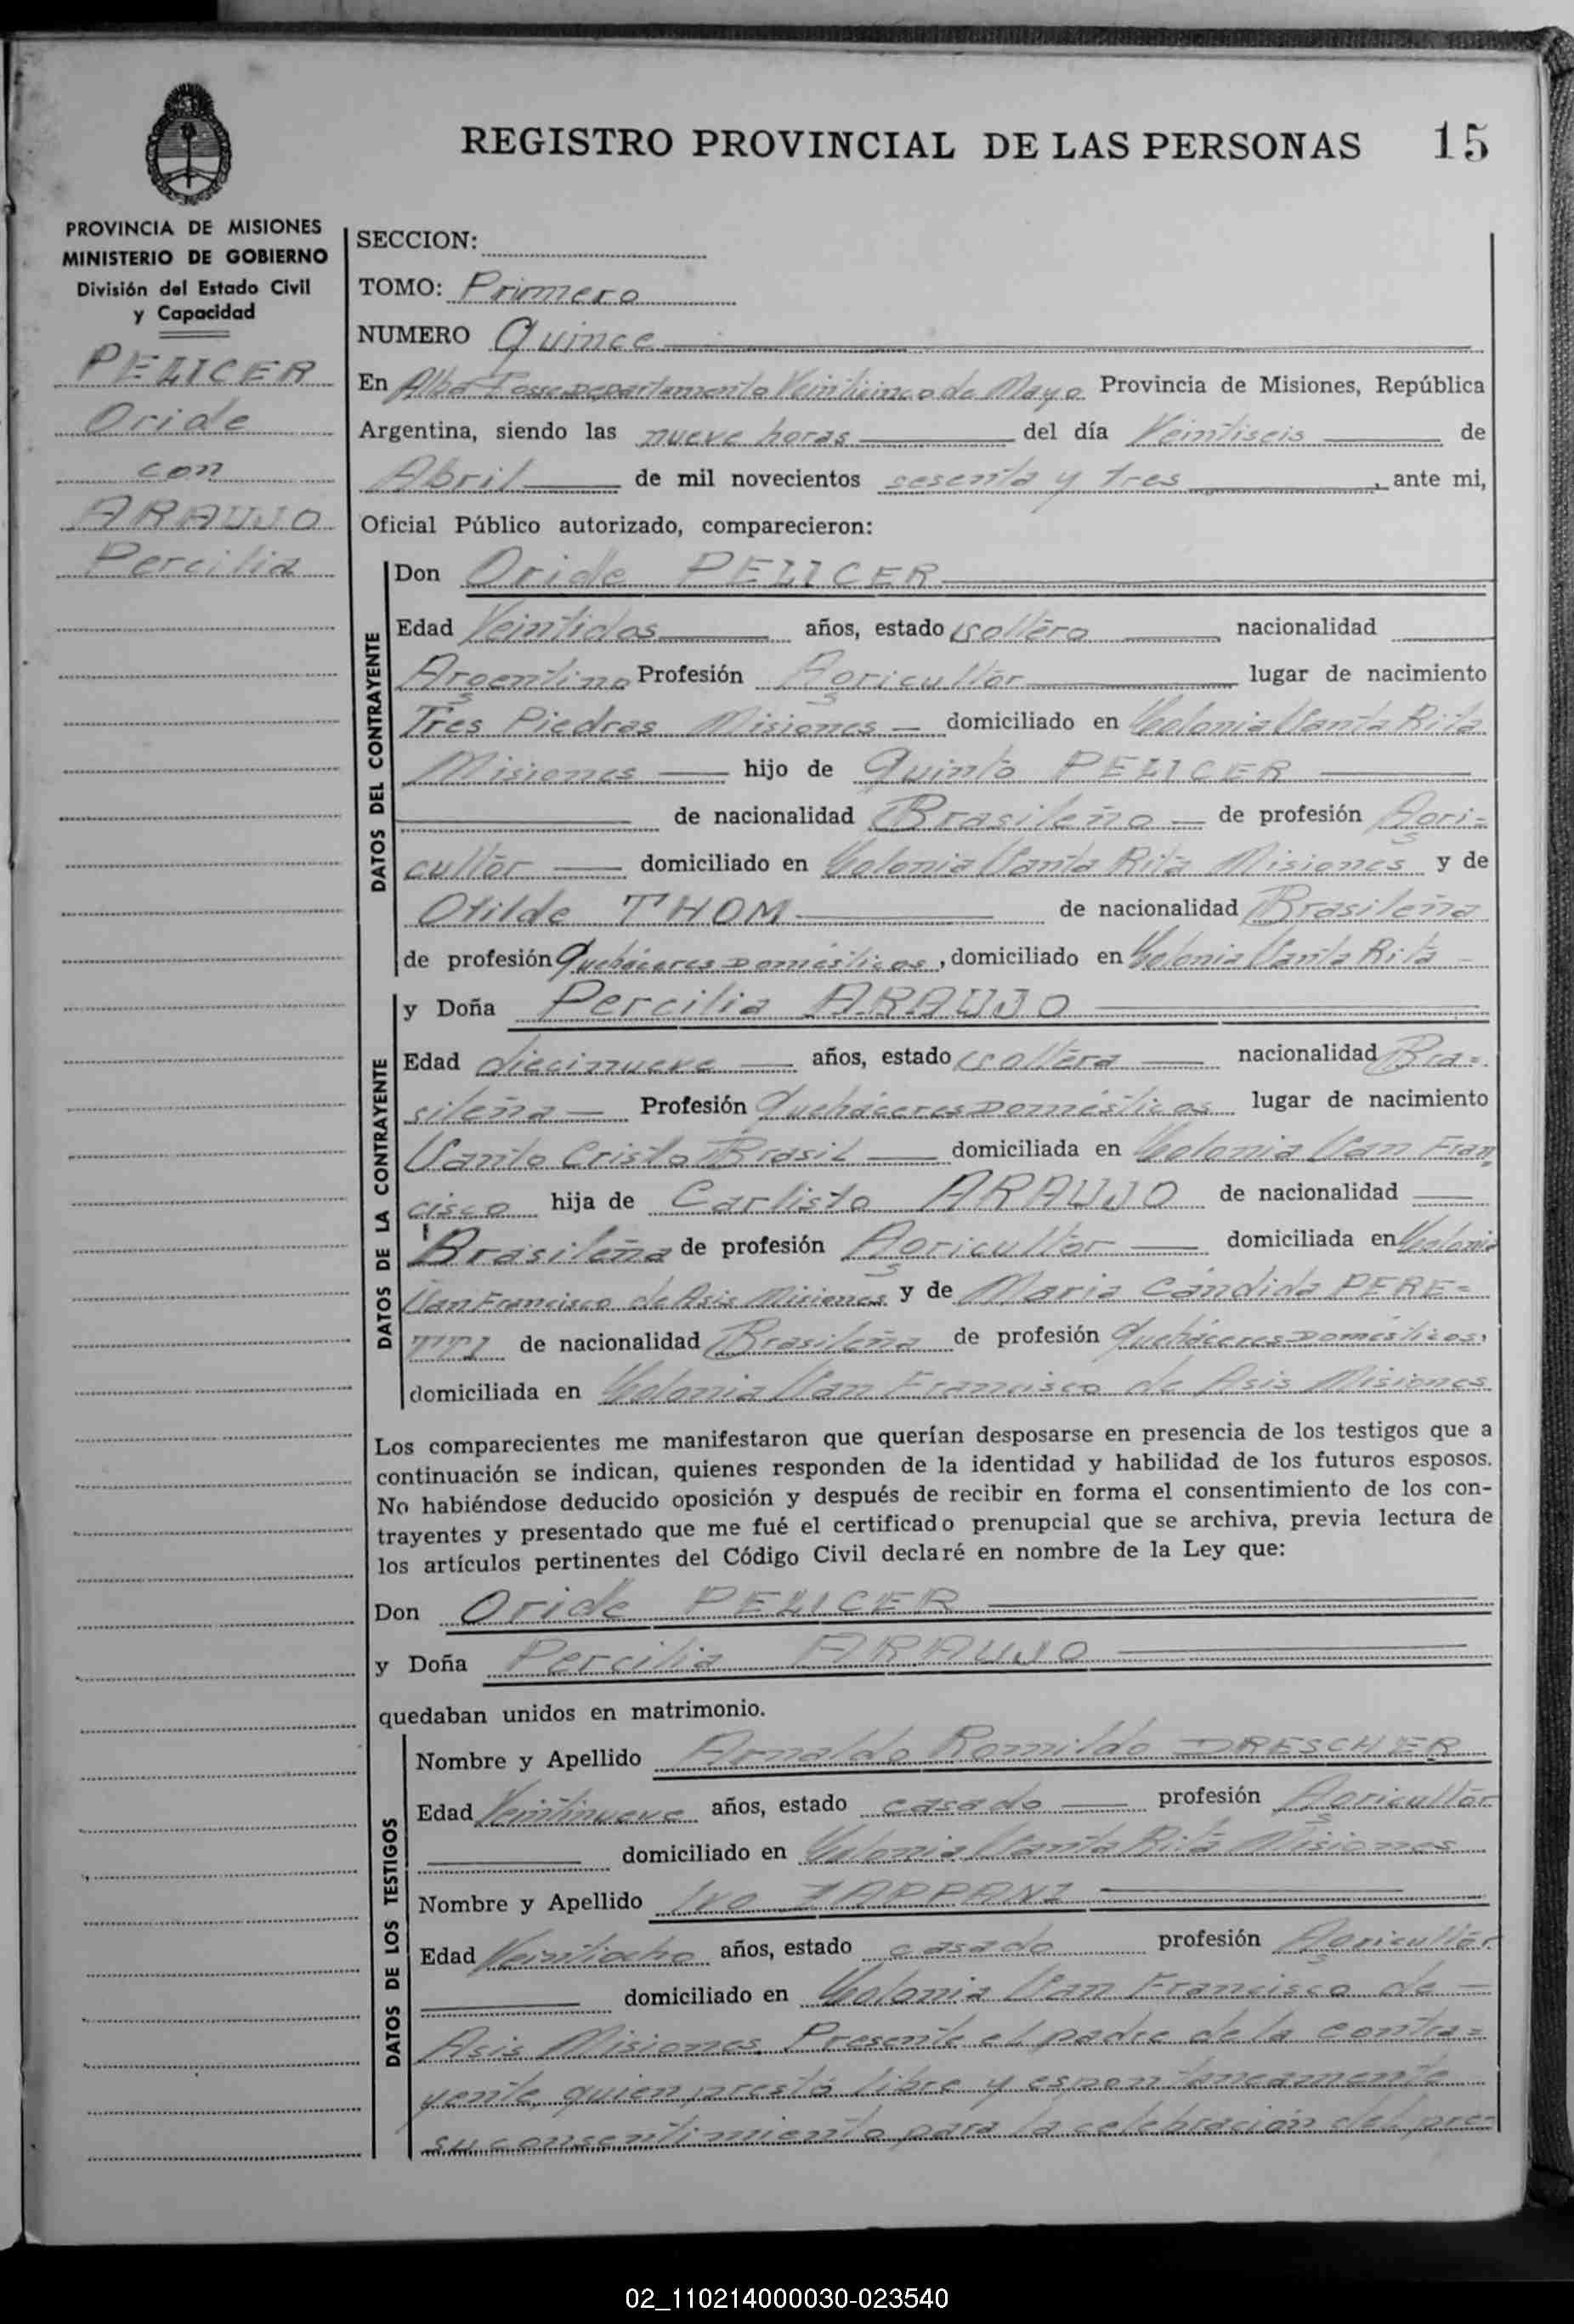 REGISTRO PROVINCIAL DE LAS PERSONAS 15
PROVINCIA DE MISIONES
MINISTERIO DE GOBIERNO
División del Estado Civil
y Capacidad
PELICER
Oride
con
ARAUJO
Percilia
SECCION:
TOMO: Primero
NUMERO Quince
En Alba Posse Departamento Veinticinco de Mayo Provincia de Misiones, República
Argentina, siendo las nueve horas del día Veintiseis de
Abril de mil novecientos sesenta y tres, ante mi,
Oficial Público autorizado, comparecieron:
DATOS DEL CONTRAYENTE
Don Oride PELICER
Edad Veintidos años, estado soltero nacionalidad
Argentino Profesión Agricultor lugar de nacimiento
Tres Piedras Misiones domiciliado en Colonia Santa Rita
Misiones hijo de Quinto PELICER
de nacionalidad Brasileño de profesión Agri=
cultor domiciliado en Colonia Santa Rita Misiones y de
Otilde THOM de nacionalidad Brasileña
de profesión Quehaceres Domésticos, domiciliado en Colonia Santa Rita
DATOS DE LA CONTRAYENTE
y Doña Percilia ARAUJO
Edad diecinueve años, estado soltera nacionalidad Bra=
sileña Profesión Quehaceres Domésticos lugar de nacimiento
Santo Cristo Brasil domiciliada en Colonia San Fran
cisco hija de Carlisto ARAUJO de nacionalidad
Brasileña de profesión Agricultor domiciliada en Colonia
San Francisco de Asis Misiones y de Maria Cándida PERE=
TTI de nacionalidad Brasileña de profesión Quehaceres Domésticos,
domiciliada en Colonia San Francisco de Asis Misiones
Los comparecientes me manifestaron que querían desposarse en presencia de los testigos que a
continuación se indican, quienes responden de la identidad y habilidad de los futuros esposos.
No habiéndose deducido oposición y después de recibir en forma el consentimiento de los con-
trayentes y presentado que me fué el certificado prenupcial que se archiva, previa lectura de
los artículos pertinentes del Código Civil declaré en nombre de la Ley que:
Don Oride PELICER
y Doña Percilia ARAUJO
quedaban unidos en matrimonio.
DATOS DE LOS TESTIGOS
Nombre y Apellido Arnaldo Romildo DRESCHER
Edad Veintinueve años, estado casado profesión Agricultor
domiciliado en Colonia Santa Rita Misiones
Nombre y Apellido Ivo ZAPPANI
Edad Veintiocho años, estado casado profesión Agricultor
domiciliado en Colonia San Francisco de
Asis Misiones. Presente el padre de la contra=
yente, quien prestó libre y espontaneamente
su consentimiento para la celebración del pre=
02_110214000030-023540